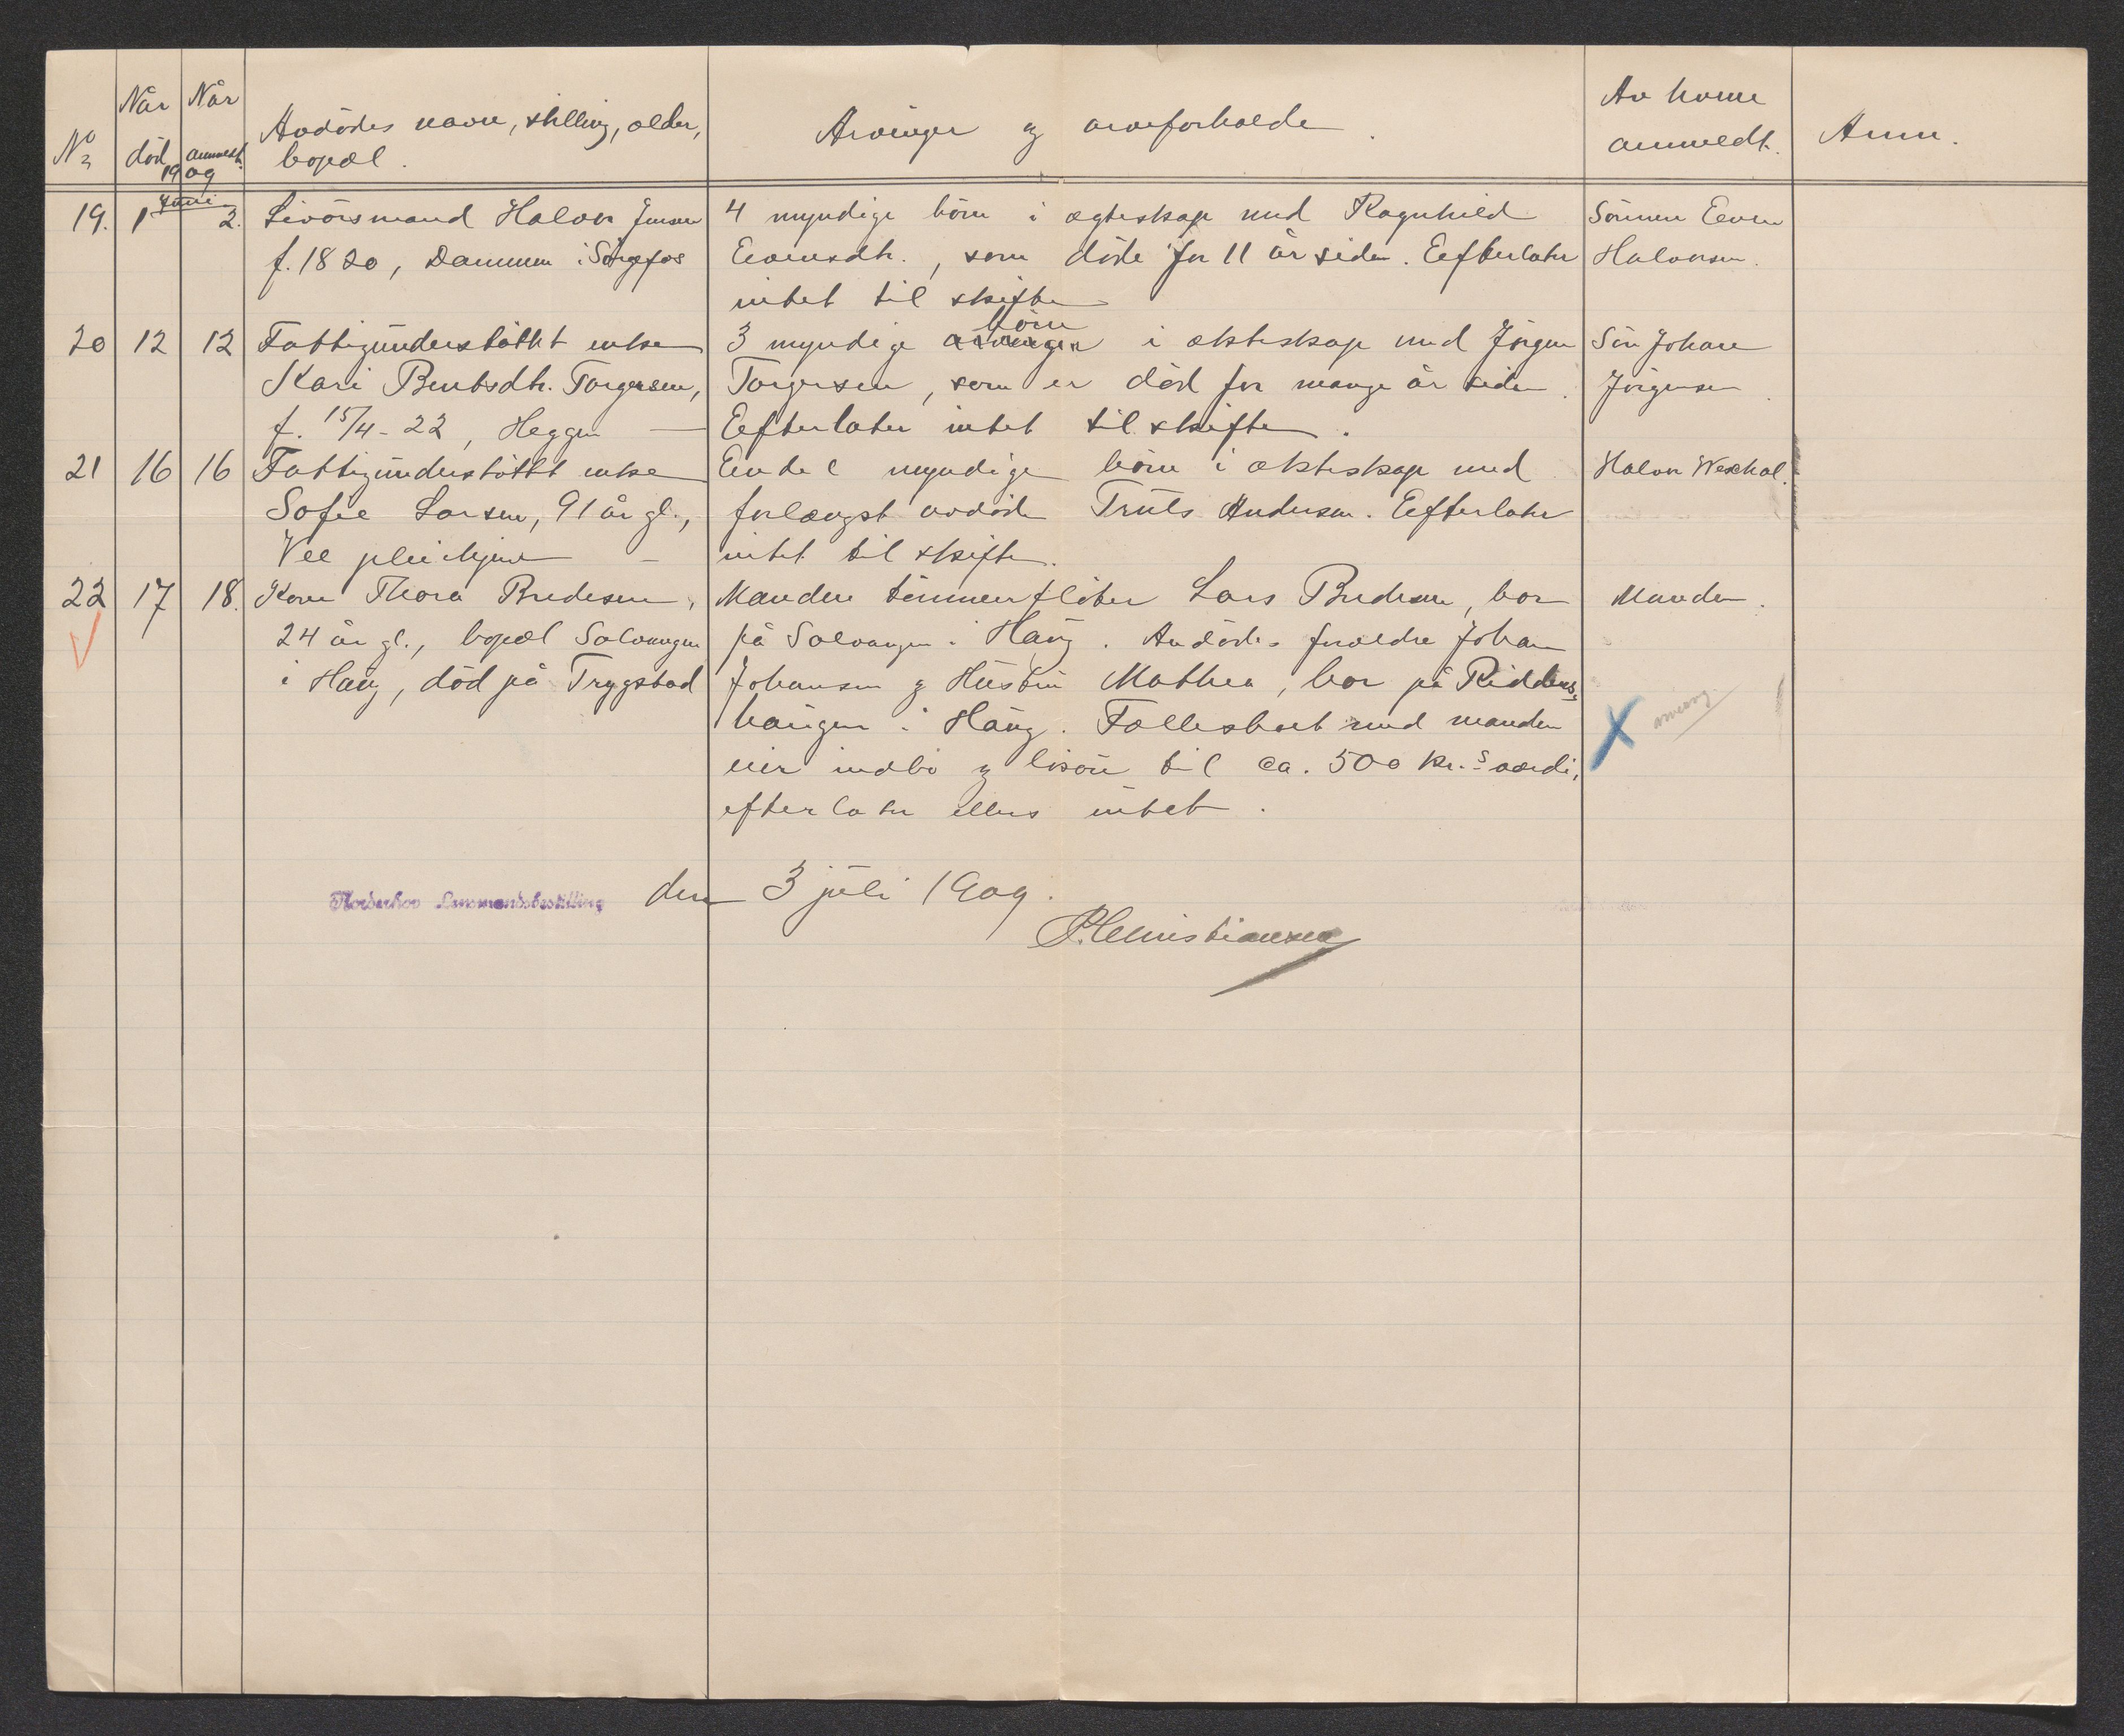 No
Når død
Når anmeldt.
1909
Avdödes navn, stilling, alder,
bopæl.
Arvinger og arveforholde.
Av hvem
anmeldt.
Anm.
Juni
19. 1 2. Livörsmand Halvor Jensen
f. 1820, Dammen i Sørgefos
4 myndige börn i ægteskap med Ragnhild
Evensdtr., som döde for 11 år siden. Eefterlater
intet til skifte
Sönnen Even
Halvorsen.
20 12 12 Fattigunderstöttet enke
Kari Berntsdtr. Torgersen,
f. 15/4-22, Heggen —
börn
3 myndige arvinger i ekteskap med Jörgen
Torgersen, som er död for mange år siden.
Eefterlater intet til skifte.
Sön Johan
Jörgensen.
21 16 16 Fattigunderstöttet enke
Sofie Larsen, 91 år gl.,
Vee pleiehjem –
Endel myndige börn i ekteskap med
forlængst avdöde Truls Andersen. Eefterlater
intet til skifte.
Halvor Wexhal.
22 17 18. Kone Thora Bredesen,
24 år gl., bopæl Solvangen
i Haug, död på Trygstad
Manden tömmerflöter Lars Bredesen, bor
på Solvangen i Haug. Avdödes forældre Johan
Johansen og Hustru Mathea, bor på Ridders-
haugen i Haug. Fællesboet med manden
eier indbo og lösöre til ca. 500 kr.s værdi,
efterlater ellers intet.
Manden.
X
Norderhov Lensmandsbestilling den 3 juli 1909.
P. Christiansen